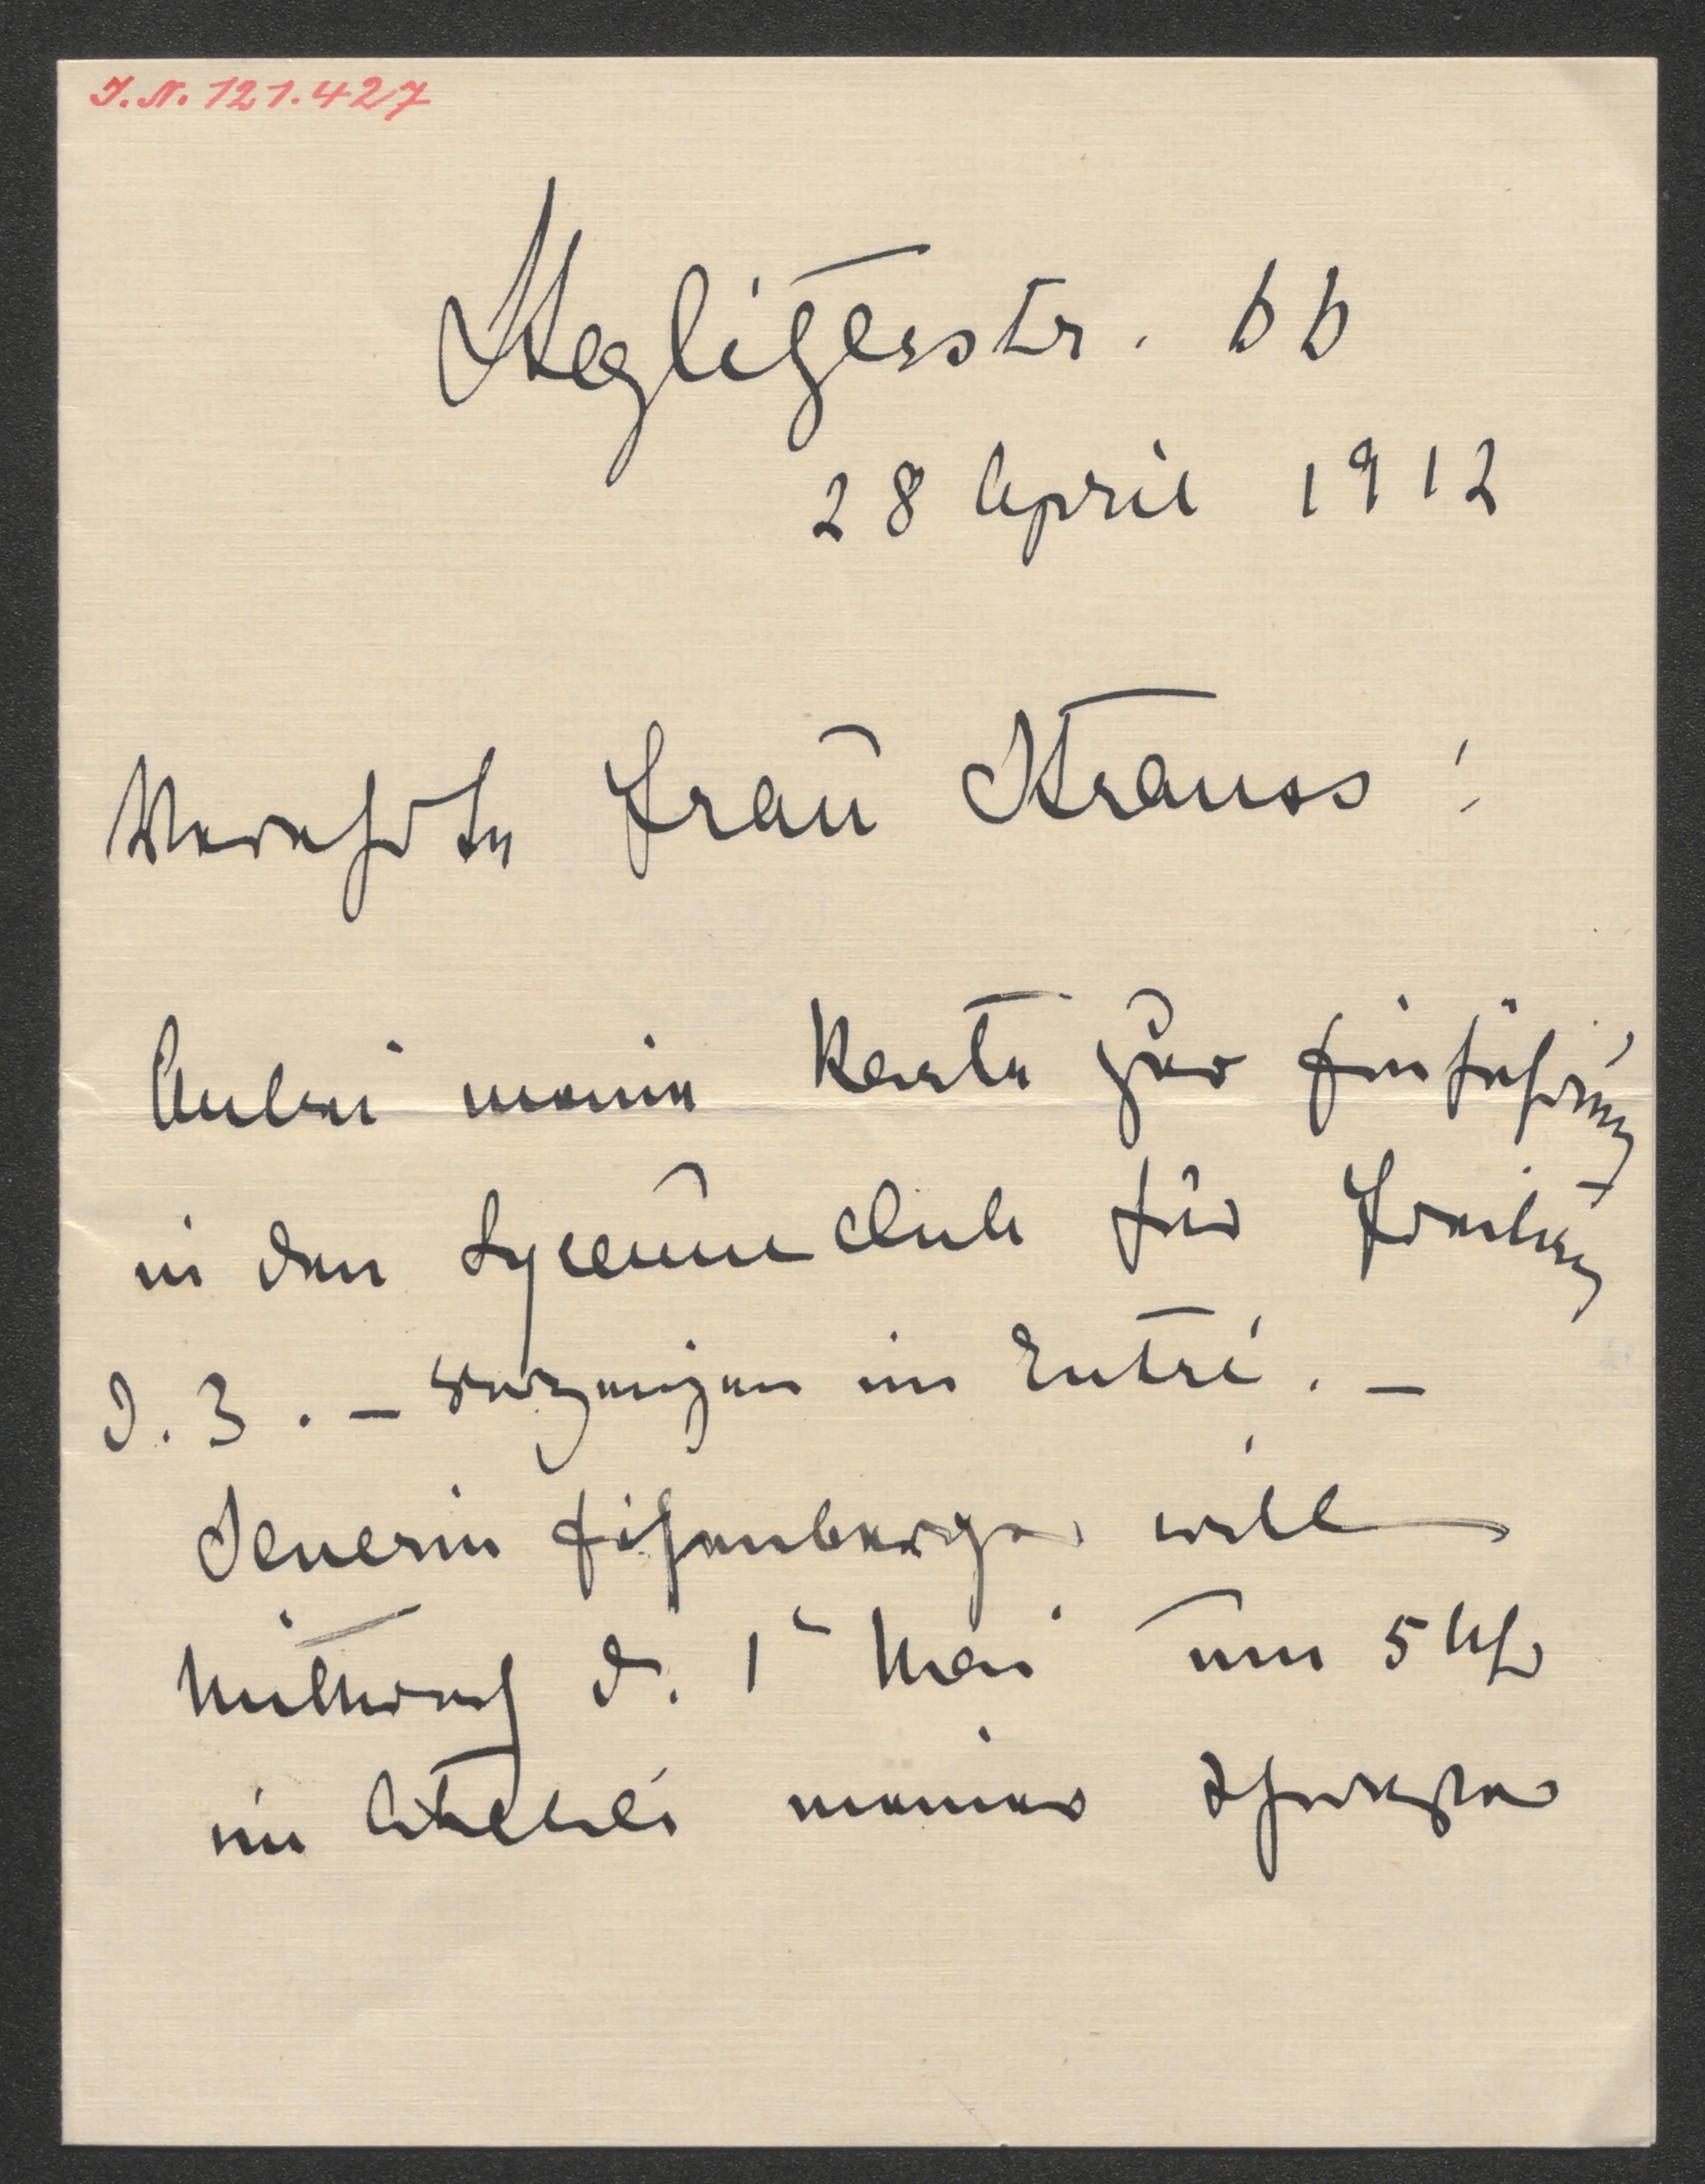 I.N. 121.427
Steglitzerstr. 66
28 April 1912
Verehrte Frau Strauss!
Anbei meine Karte zur Einführung
in den Lyceumclub für Freitag
d. 3. – vorzeigen im Entré. –
Severin Eisenberger will
Mittwoch d. 1ᵗ Mai um 5 Uhr
im Atelié meiner Schwester